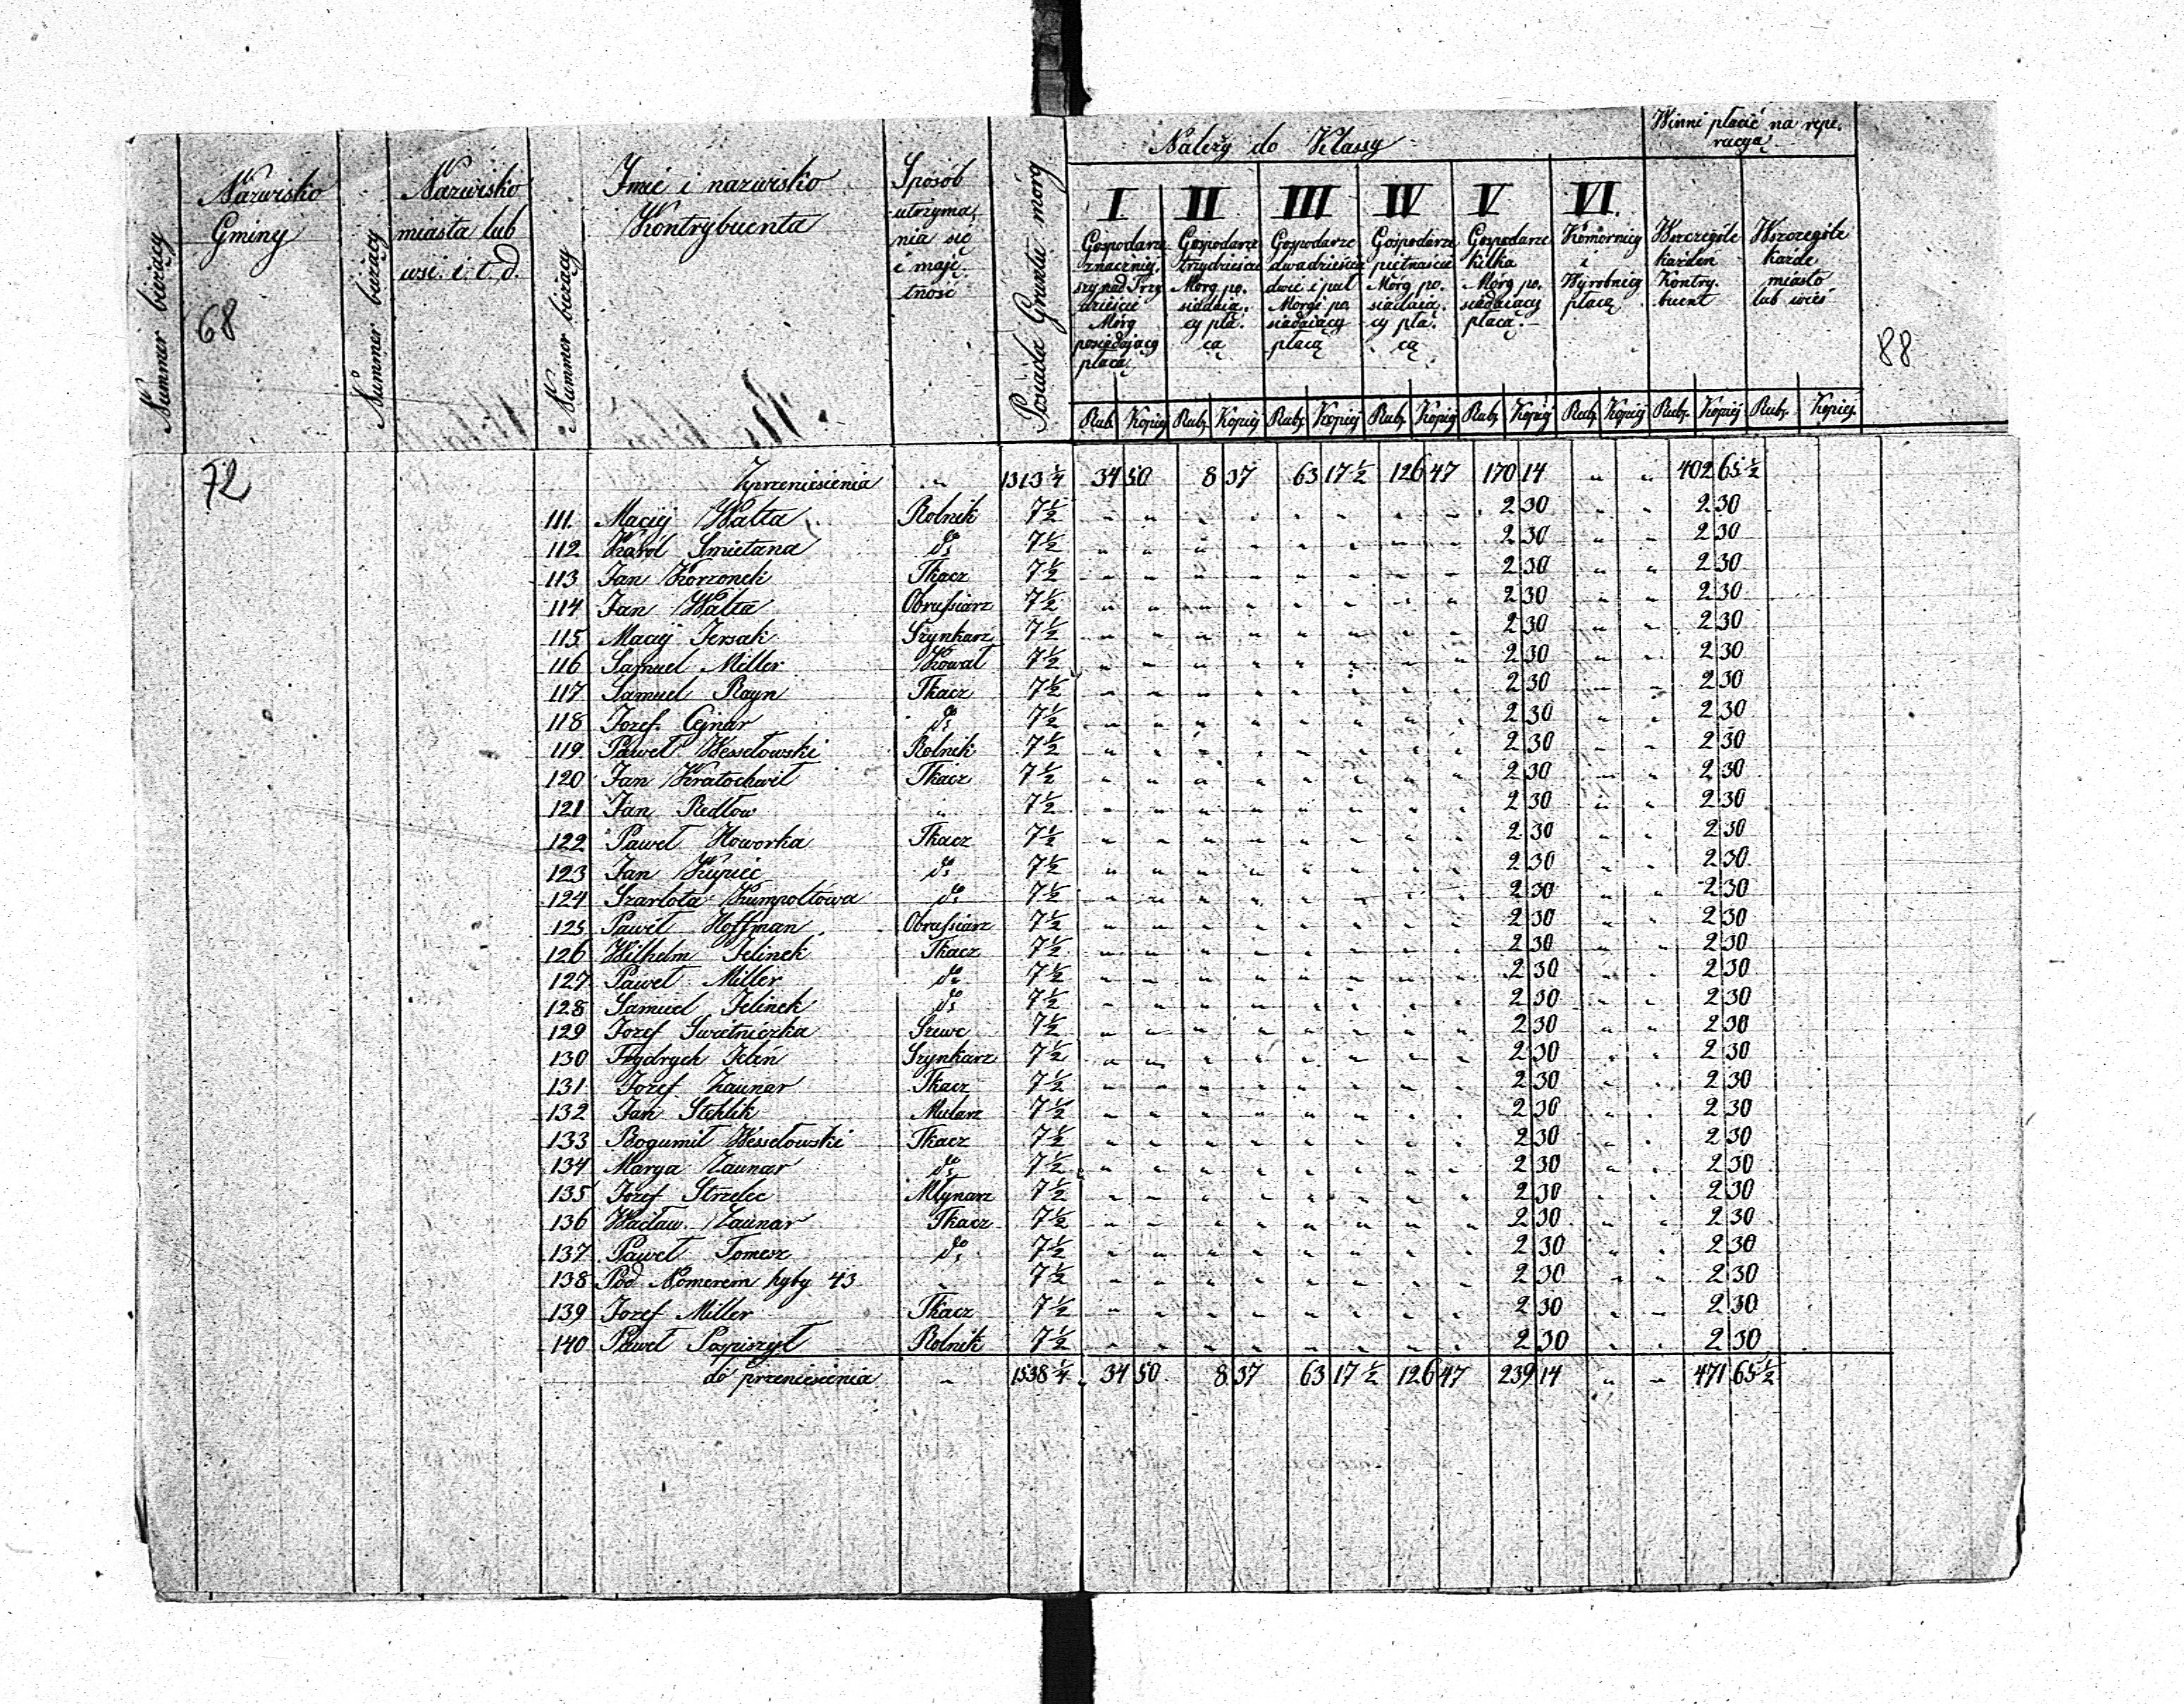 Należy do Klassy
Winni płacić na repe-
racyą
Nummer bieżacy
Nazwisko
Gminy
68
Nummer bieżacy
Nazwisko
miasta lub
wsi i t. d.
Nummer bieżacy
Imie i nazwisko
Kontrybuenta
Sposób
utrzyma,
nia się
i maję,
tność
Posiada Gruntu morg
I
Gospodarze
znaczniey,
szy nad Trzy
dzieście
Mórg
posiadający
płacą
II
Gospodarze
trzydzieście
Mórg po.
siadają,
cy pła.
cą
III
Gospodarze
dwadzieścia
dwie i puł
Morgi po.
siadaiący
płacą
IV
Gospodarze
piętnaście
Mórg po.
siadają.
cy pła.
cą
V
Gospodarze
kilka
Mórg po.
siadaiący
płacą.
VI.
Komornicy
i
Wyrobnicy
płacą
Wszczególe
każden
Kontry.
buent
Wszczególe
każde
miasto
lub wieś
88
Rub. Kopiej Rub. Kopiej Rub. Kopiej Rub. Kopiej Rub. Kopiej Rub. Kopiej Rub. Kopiej Rub. Kopiej
72 Zprzeniesienia " 1313 ¼ 34 50 8 37 63 17 ½ 126 47 170 14 " " 402 65 ½
111. Maciej Walta Rolnik 7½ 2 30 2 30
112 Karól Smietana do 7½ 2 30 2 30
113 Jan Korzonek Tkacz 7½ 2 30 2 30
114 Jan Walta Obrusiarz 7½ 2 30 2 30
115 Maciej Jersak Szynkarz 7½ 2 30 2 30
116 Samuel Miller Kowal 7½ 2 30 2 30
117 Samuel Rayn Tkacz 7½ 2 30 2 30
118 Jozef Cejnar do 7½ 2 30 2 30
119 Paweł Wessełowski Rolnik 7½ 2 30 2 30
120 Jan Kratochwil Tkacz 7½ 2 30 2 30
121 Jan Redlow " 7½ 2 30 2 30
122 Paweł Howorka Tkacz 7½ 2 30 2 30
123 Jan Kupiec do 7½ 2 30 2 30
124 Szarlota Kumpoltowa do 7½ 2 30 2 30
125 Paweł Hoffman Obrusiarz 7½ 2 30 2 30
126 Wilhelm Jelinek Tkacz 7½ 2 30 2 30
127 Paweł Miller do 7½ 2 30 2 30
128 Samuel Jelinek do 7½ 2 30 2 30
129 Jozef Swietniczka Szewc 7½ 2 30 2 30
130 Frydrych Jeleń Szynkarz 7½ 2 30 2 30
131 Jozef Zaunar Tkacz 7½ 2 30 2 30
132 Jan Stehlik Mularz 7½ 2 30 2 30
133 Bogumił Wessełowski Tkacz 7½ 2 30 2 30
134 Marya Zaunar do 7½ 2 30 2 30
135 Jozef Strzelec Młynarz 7½ 2 30 2 30
136 Wacław Zaunar Tkacz 7½ 2 30 2 30
137 Paweł Tomesz do 7½ 2 30 2 30
138 Pod Nomerem hyby 43 " 7½ 2 30 2 30
139 Jozef Miller Tkacz 7½ 2 30 2 30
140 Paweł Pospiszył Rolnik 7½ 2 30 2 30
do przeniesienia " 1538 ¼ 34 50 8 37 63 17 ½ 126 47 239 14 " " 471 65 ½